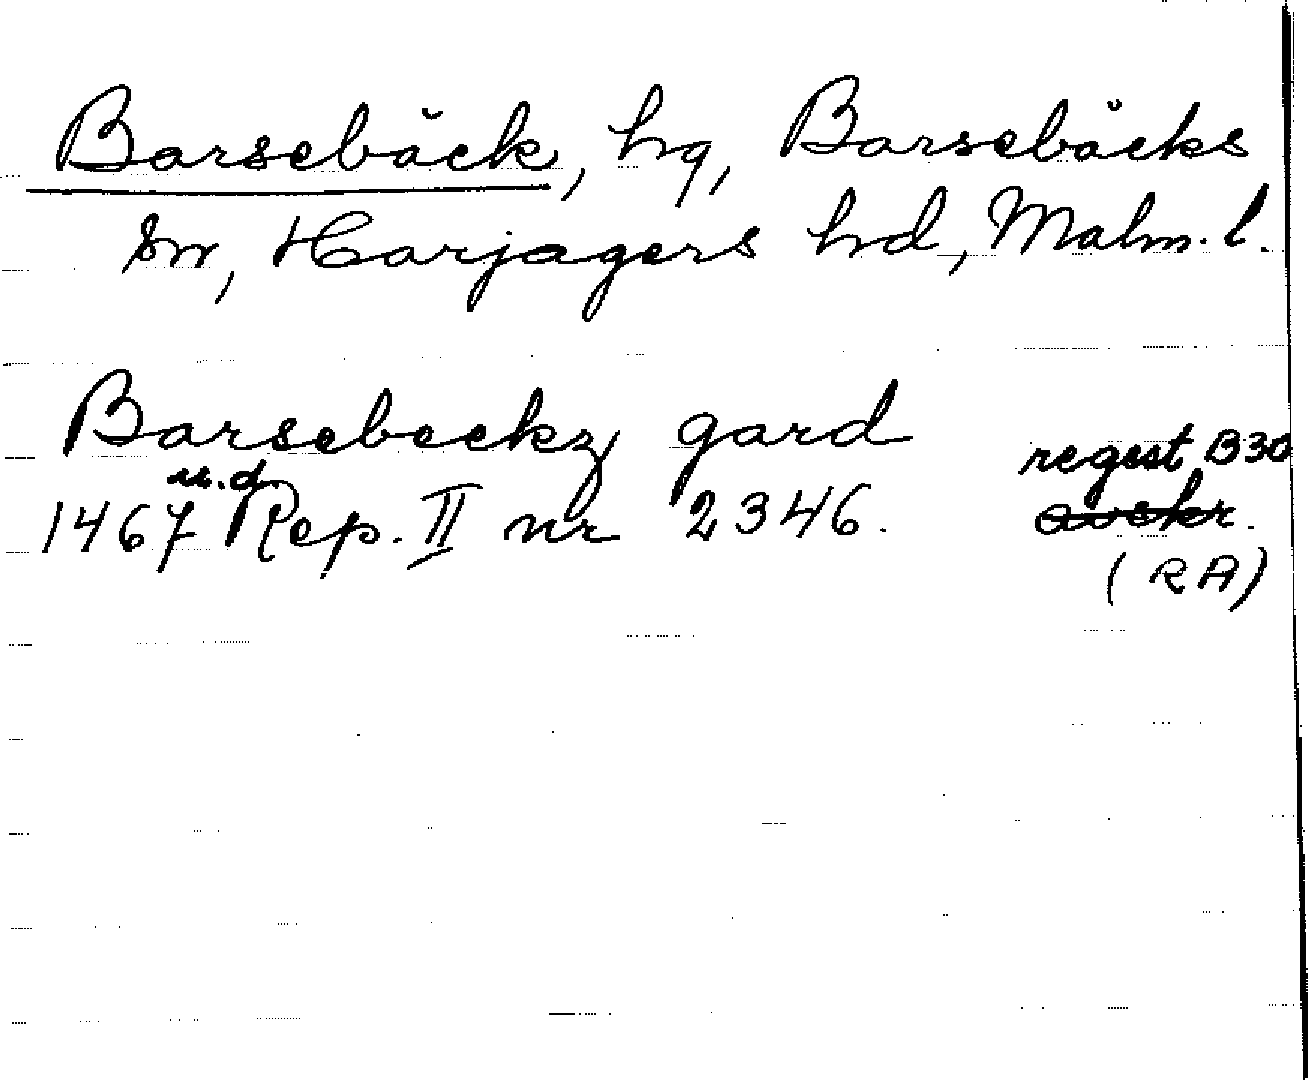 Barsebäck, hg, Barsebäcks
sn, Harjagers hd, Malm. l.
Barsebeckz gard
regest B30
u.d.
1467 Rep. II nr 2346. avskr.
(RA)